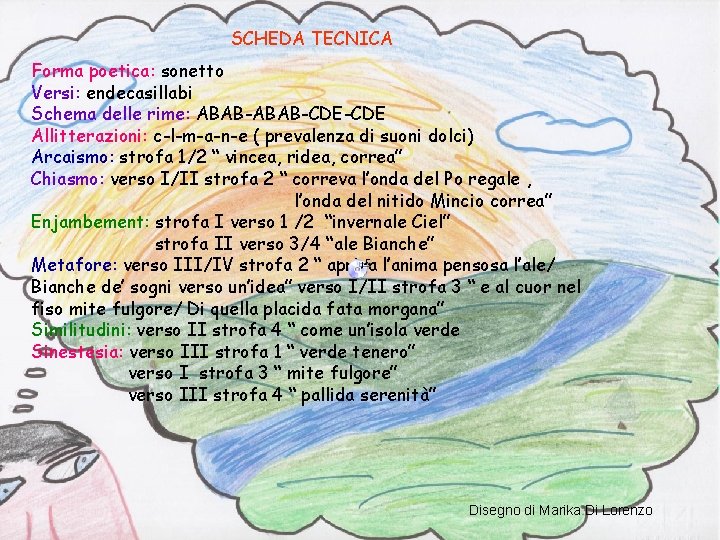 SCHEDA TECNICA
Forma poetica: sonetto
Versi: endecasillabi
Schema delle rime: ABAB-ABAB-CDE-CDE
Allitterazioni: c-l-m-a-n-e ( prevalenza di suoni dolci)
Arcaismo: strofa 1/2 “ vincea, ridea, correa”
Chiasmo: verso I/II strofa 2 “ correva l’onda del Po regale ,
l’onda del nitido Mincio correa”
Enjambement: strofa I verso 1 /2 “invernale Ciel”
strofa II verso 3/4 “ale Bianche”
Metafore: verso III/IV strofa 2 “ apriva l’anima pensosa l’ale/
Bianche de’ sogni verso un’idea” verso I/II strofa 3 “ e al cuor nel
fiso mite fulgore/ Di quella placida fata morgana”
Similitudini: verso II strofa 4 “ come un’isola verde
Sinestesia: verso III strofa 1 “ verde tenero”
verso I strofa 3 “ mite fulgore”
verso III strofa 4 “ pallida serenità”
Disegno di Marika Di Lorenzo